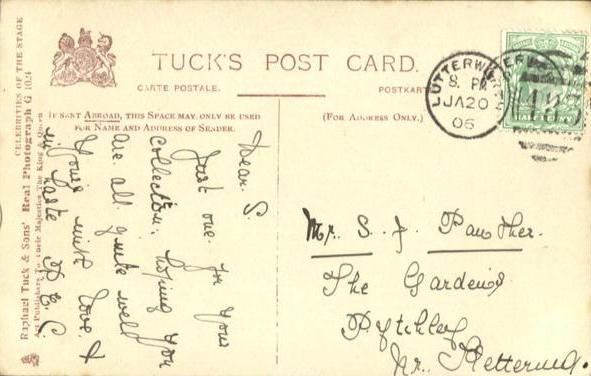 TUCK'S POST CARD.
CARTE POSTALE.
POSTKART
IF SENT ABROAD, THIS SPACE MAY ONLY BE USED
FOR NAME AND ADDRESS OF SENDER.
(FOR ADDRESS ONLY.)
CELEBRITIES OF THE STAGE
Raphael Tuck & Sons' Real Photograph G 1024
Art Publishers To Their Majesties The King & Queen
LUTTERWORTH
8. PM
JA 20
06
HALFPENNY
Dear S.
Just one for your
collection. hoping you
are all quite well
Yours with love. &
in haste
Mr. S. J. Panther.
The Gardens
Pytchley
Nr. Kettering.